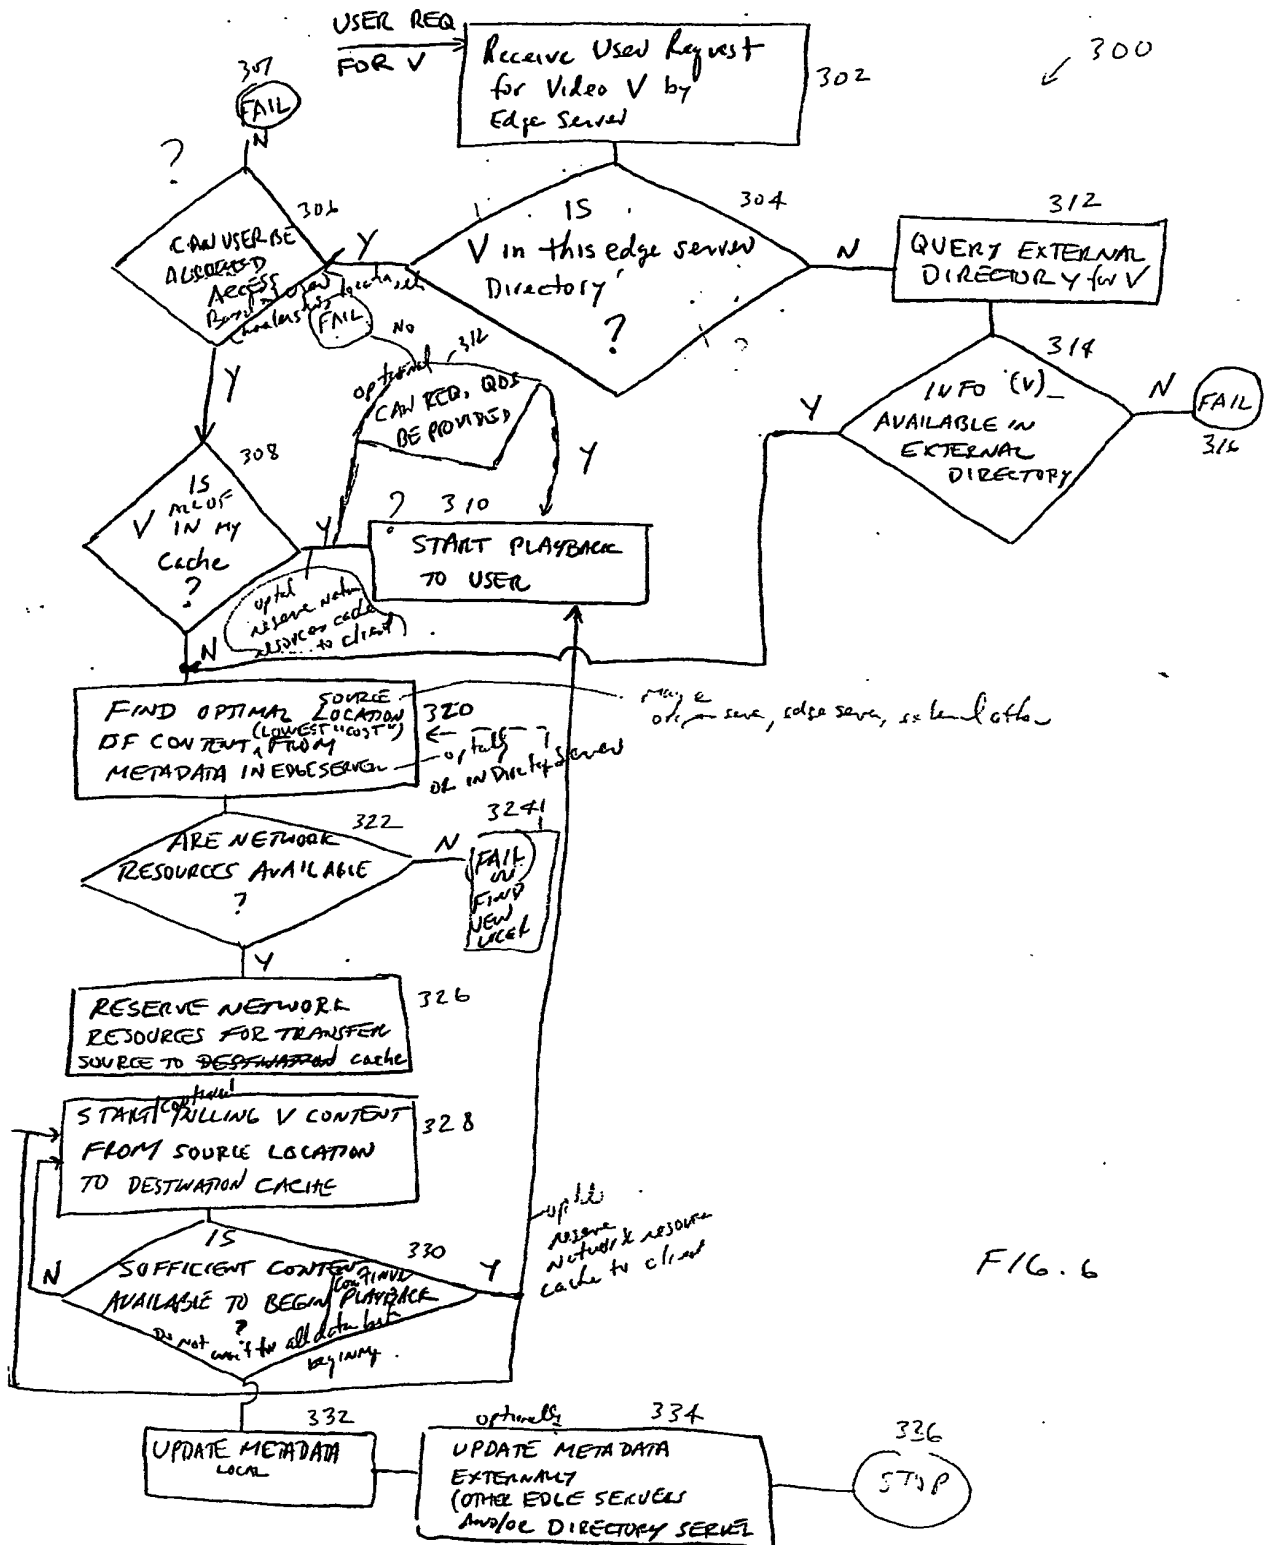 USER REQ
FOR V
Receive User Request
for Video V by
Edge Server
302
300
307
FAIL
N
?
306
CAN USER BE
ALLOWED
ACCESS
Based on user
FAIL
Y
Y
304
IS
V in this edge server
Directory
?
N
312
QUERY EXTERNAL
DIRECTORY for V
314
INFO (V)
AVAILABLE IN
EXTERNAL
DIRECTORY
Y
N
FAIL
316
No
optional
312
CAN REQ. QOS
BE PROVIDED
Y
308
IS
ALL OF
V IN MY
Cache
?
Y
N
?
310
START PLAYBACK
TO USER
reserve
resources cache
to client
FIND OPTIMAL SOURCE LOCATION
OF CONTENT (LOWEST "COST") FROM
METADATA IN EDGE SERVER
320
OR IN Directory Server
origin server, edge server, external other
322
ARE NETWORK
RESOURCES AVAILABLE
?
N
Y
324
FAIL
or
FIND
NEW
326
RESERVE NETWORK
RESOURCES FOR TRANSFER
SOURCE TO DESTINATION cache
START/continue PULLING V CONTENT
FROM SOURCE LOCATION
TO DESTINATION CACHE
328
IS
SUFFICIENT CONTENT
AVAILABLE TO BEGIN/CONTINUE PLAYBACK
?
Do not wait for all data but
beginning
330
N
Y
reserve
Network resource
cache to client
332
UPDATE METADATA
LOCAL
optionally
334
UPDATE METADATA
EXTERNALLY
(OTHER EDGE SERVERS
AND/OR DIRECTORY SERVER
336
STOP
FIG. 6